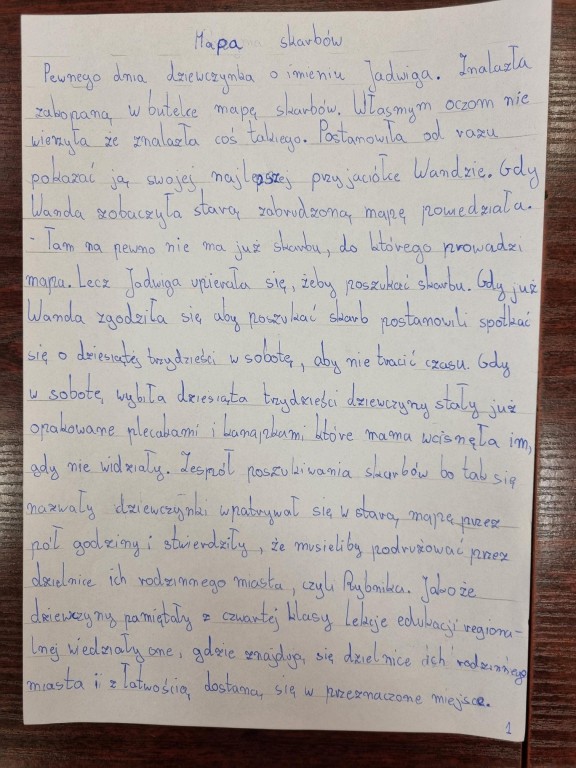 Mapa skarbów
Pewnego dnia dziewczynka o imieniu Jadwiga. Znalazła
zakopaną w butelce mapę skarbów. Własnym oczom nie
wierzyła że znalazła coś takiego. Postanowiła od razu
pokazać ją swojej najlepszej przyjaciółce Wandzie. Gdy
Wanda zobaczyła starą zabrudzoną mapę powedziała.
- Tam na pewno nie ma już skarbu, do którego prowadzi
mapa. Lecz Jadwiga upierała się, żeby poszukać skarbu. Gdy już
Wanda zgodziła się aby poszukać skarb postanowili spotkać
się o dziesiątej trzydzieści w sobotę, aby nie tracić czasu. Gdy
w sobotę wybiła dziesiąta trzydzieści dziewczyny stały już
opakowane plecakami i kanapkami które mama wcisnęła im,
gdy nie widziały. Zespół poszukiwania skarbów bo tak się
nazwały dziewczynki wpatrywał się w starą mapę przez
pół godziny i stwierdziły, że musieliby podrużować przez
dzielnice ich rodzinnego miasta, czyli Rybniku. Jako że
dziewczyny pamiętały z czwartej klasy Lekcje edukacji regiona-
lnej wiedziały one, gdzie znajdują się dzielnice ich rodzinnego
miasta ii z łatwością dostaną się w przeznaczone miejsce.
1